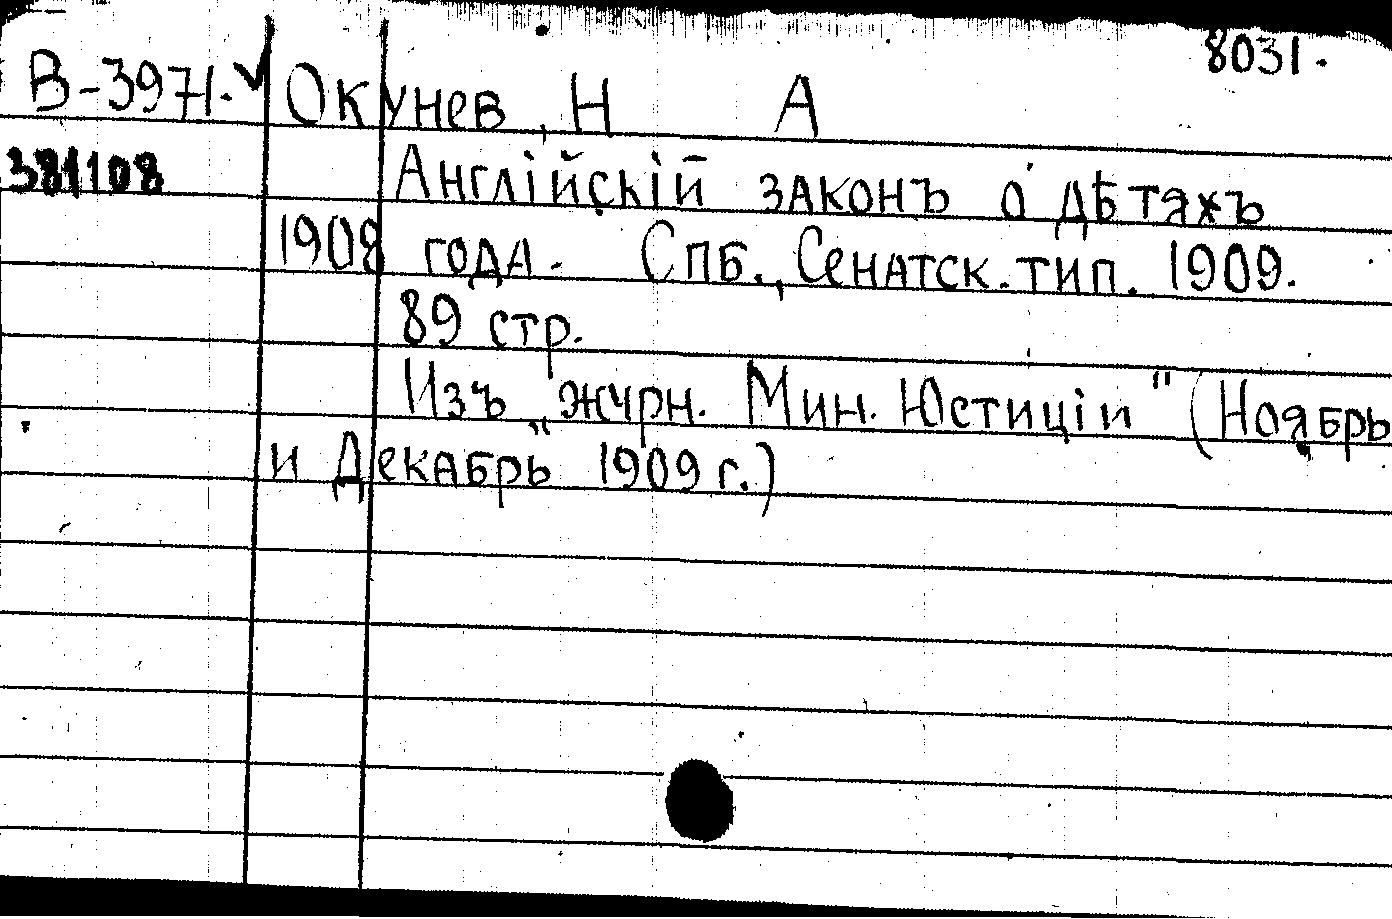 8031.
В-3971. Окунев, Н А
381108 Англійскій законъ о дѣтяхъ
1908 года. Спб., Сенатск. тип. 1909.
89 стр.
Изъ „журн. Мин. Юстиціи" (Ноябрь
и Декабрь 1909 г.)